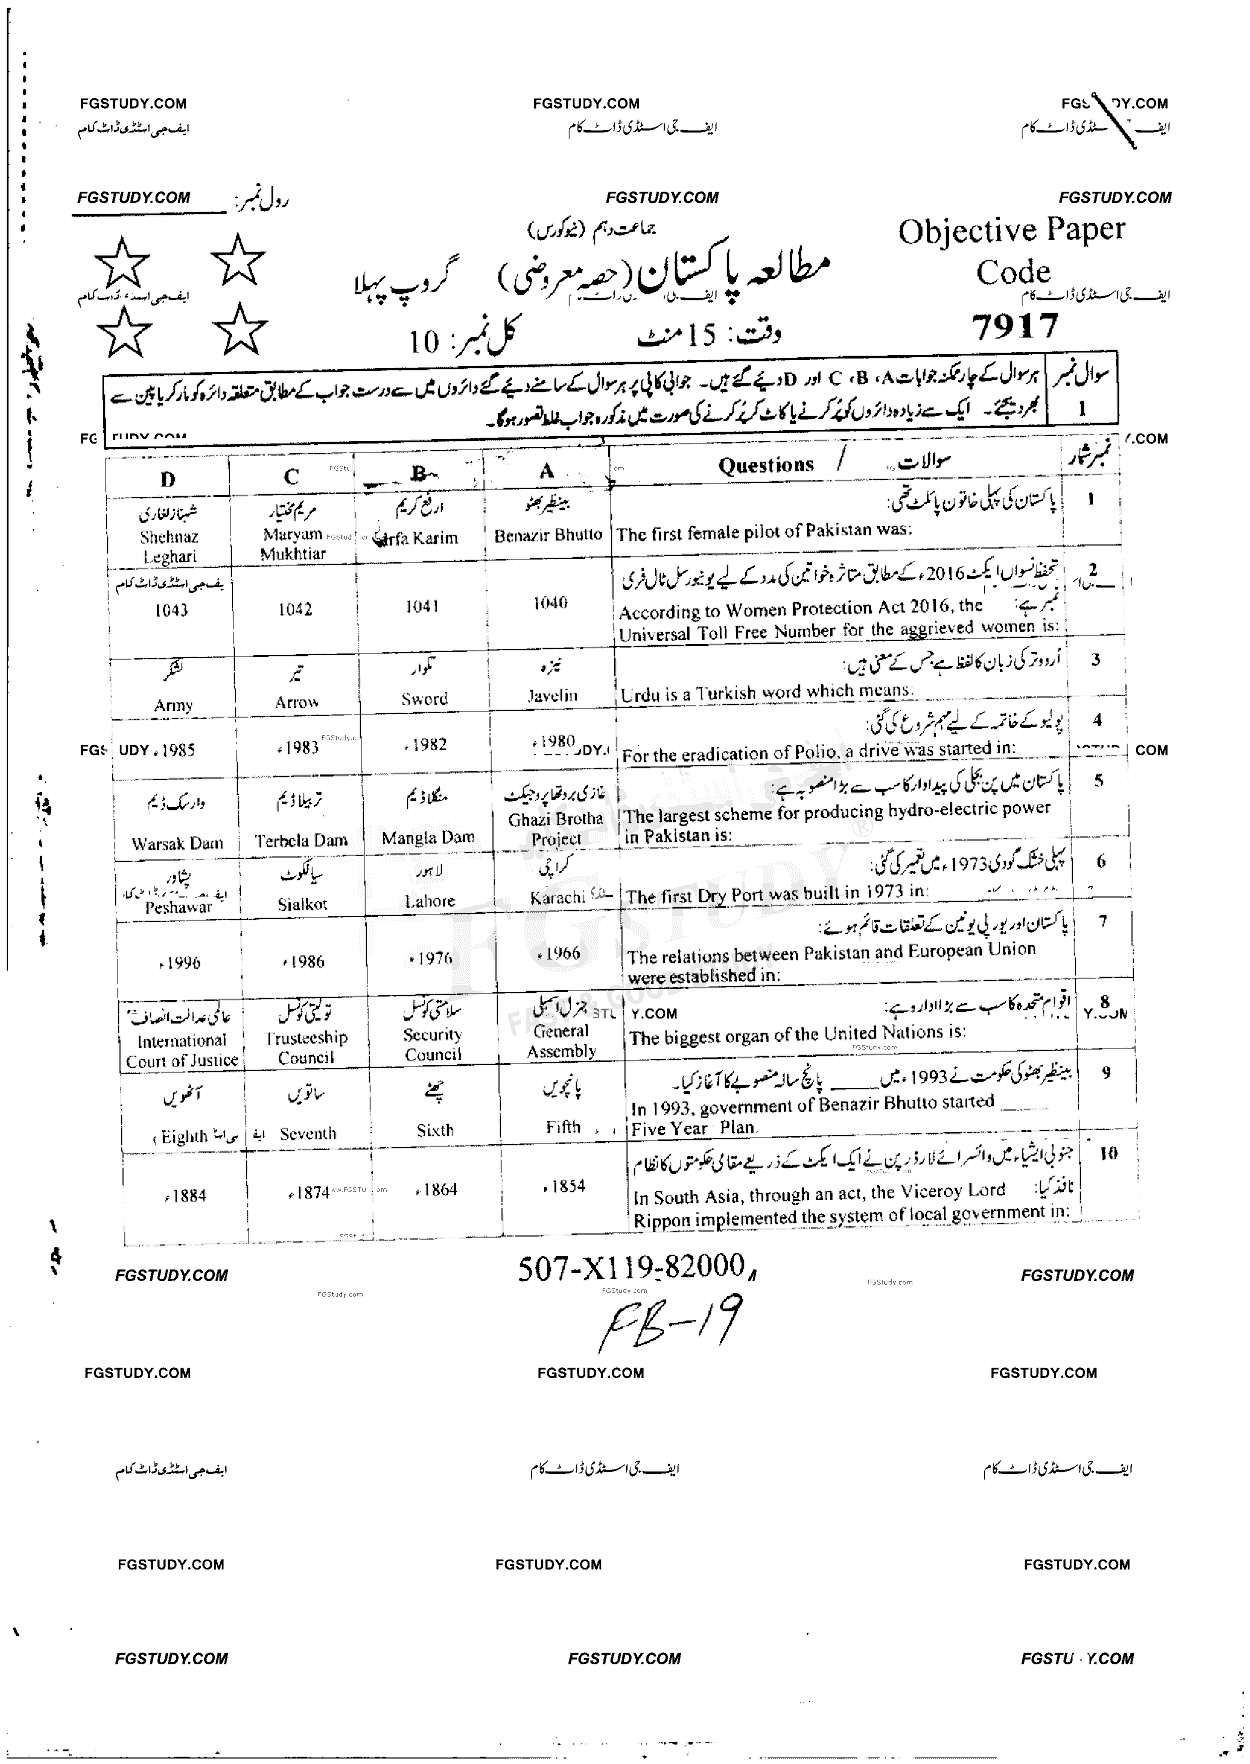 FGSTUDY.COM FGSTUDY.COM
ایف جی اسٹڈی ڈاٹ کام ایف جی اسٹڈی ڈاٹ کام
FGSTUDY.COM رول نمبر: FGSTUDY.COM FGSTUDY.COM
جماعت دہم (نیو کورس) Objective Paper
مطالعہ پاکستان (حصہ معروضی) گروپ پہلا Code
وقت: 15 منٹ کل نمبر: 10 7917
سوال نمبر 1
ہر سوال کے چار ممکنہ جوابات A، B، C اور D دیئے گئے ہیں۔ جوابی کاپی پر ہر سوال کے سامنے دیئے گئے دائروں میں سے درست جواب کے مطابق متعلقہ دائرہ کو مارکر یا پین سے
بھر دیجئے۔ ایک سے زیادہ دائروں کو پُر کرنے یا کاٹ کر پُر کرنے کی صورت میں مذکورہ جواب غلط تصور ہوگا۔
D C B A Questions / سوالات نمبر شمار
شہناز لغاری مریم مختیار ارفع کریم بینظیر بھٹو پاکستان کی پہلی خاتون پائلٹ تھی: 1
Shehnaz Leghari Maryam Mukhtiar Arfa Karim Benazir Bhutto The first female pilot of Pakistan was:
تحفظ نسواں ایکٹ 2016ء کے مطابق متاثرہ خواتین کی مدد کے لیے یونیورسل ٹال فری نمبر ہے: 2
1043 1042 1041 1040 According to Women Protection Act 2016, the
Universal Toll Free Number for the aggrieved women is:
لشکر تیر تلوار نیزہ اُردو ترکی زبان کا لفظ ہے جس کے معنی ہیں: 3
Army Arrow Sword Javelin Urdu is a Turkish word which means:
پولیو کے خاتمہ کے لیے مہم شروع کی گئی: 4
1985ء 1983ء 1982ء 1980ء For the eradication of Polio, a drive was started in:
وارسک ڈیم تربیلا ڈیم منگلا ڈیم غازی بروتھا پروجیکٹ پاکستان میں پن بجلی کی پیداوار کا سب سے بڑا منصوبہ ہے: 5
Warsak Dam Terbela Dam Mangla Dam Ghazi Brotha Project The largest scheme for producing hydro-electric power
in Pakistan is:
پشاور سیالکوٹ لاہور کراچی پہلی خشک گودی 1973ء میں تعمیر کی گئی: 6
Peshawar Sialkot Lahore Karachi The first Dry Port was built in 1973 in:
پاکستان اور یورپی یونین کے تعلقات قائم ہوئے: 7
1996ء 1986ء 1976ء 1966ء The relations between Pakistan and European Union
were established in:
عالمی عدالت انصاف تولیتی کونسل سلامتی کونسل جنرل اسمبلی اقوام متحدہ کا سب سے بڑا ادارہ ہے: 8
International Court of Justice Trusteeship Council Security Council General Assembly The biggest organ of the United Nations is:
آٹھویں ساتویں چھٹے پانچویں بینظیر بھٹو کی حکومت نے 1993ء میں ____ پانچ سالہ منصوبے کا آغاز کیا۔ 9
Eighth Seventh Sixth Fifth In 1993, government of Benazir Bhutto started ____
Five Year Plan.
جنوبی ایشیاء میں وائسرائے لارڈ رپن نے ایک ایکٹ کے ذریعے مقامی حکومتوں کا نظام نافذ کیا: 10
1884ء 1874ء 1864ء 1854ء In South Asia, through an act, the Viceroy Lord
Rippon implemented the system of local government in:
507-X119-82000
FGSTUDY.COM FGSTUDY.COM
FB-19
FGSTUDY.COM FGSTUDY.COM FGSTUDY.COM
ایف جی اسٹڈی ڈاٹ کام ایف جی اسٹڈی ڈاٹ کام ایف جی اسٹڈی ڈاٹ کام
FGSTUDY.COM FGSTUDY.COM FGSTUDY.COM
FGSTUDY.COM FGSTUDY.COM